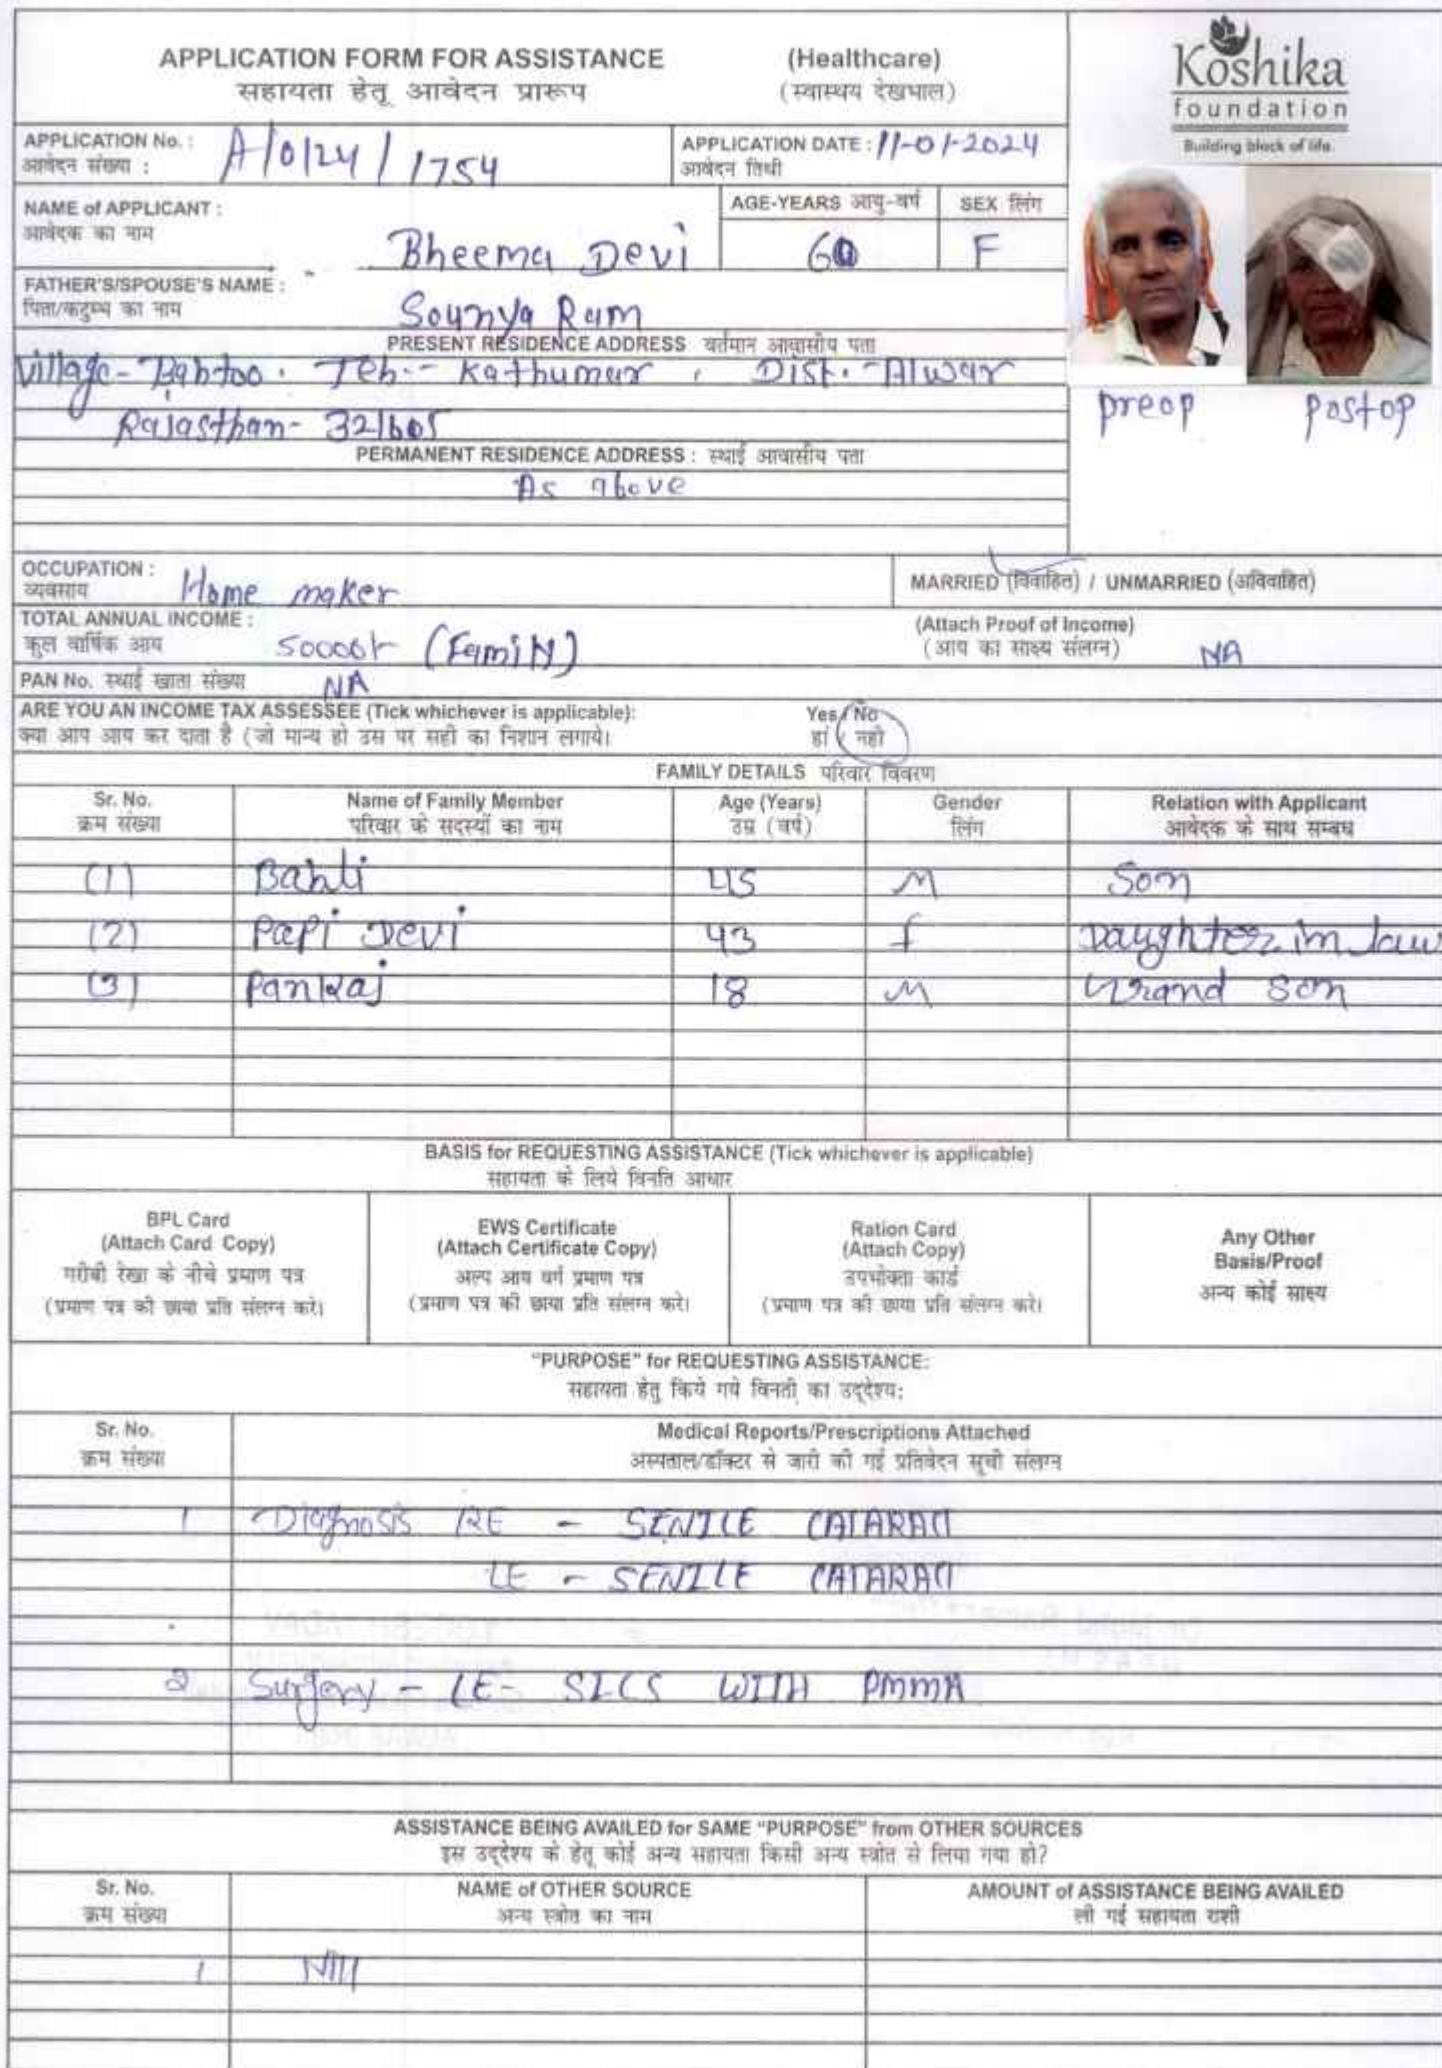 APPLICATION FORM FOR ASSISTANCE (Healthcare)
सहायता हेतू आवेदन प्रारूप (स्वास्थय देखभाल)
Koshika
foundation
Building block of life.
APPLICATION No. : A/0124/1754
आवेदन संख्या :
APPLICATION DATE : 11-01-2024
आवेदन तिथी
NAME of APPLICANT : Bheema Devi
आवेदक का नाम
AGE-YEARS आयु-वर्ष 60
SEX लिंग F
FATHER'S/SPOUSE'S NAME :
पिता/कटुम्ब का नाम
Sounya Ram
PRESENT RESIDENCE ADDRESS वर्तमान आवासीय पता
Village- Bahtoo. Teh.- Kathumar, Dist.- Alwar
Rajasthan- 321605
preop postop
PERMANENT RESIDENCE ADDRESS : स्थाई आवासीय पता
As above
OCCUPATION : Home maker
व्यवसाय
MARRIED (विवाहित) / UNMARRIED (अविवाहित)
TOTAL ANNUAL INCOME :
कुल वार्षिक आय 50000/- (Family)
(Attach Proof of Income)
(आय का साक्ष्य संलग्न) NA
PAN No. स्थाई खाता संख्या NA
ARE YOU AN INCOME TAX ASSESSEE (Tick whichever is applicable): Yes / No
क्या आप आय कर दाता है (जो मान्य हो उस पर सही का निशान लगाये। हां / नही
FAMILY DETAILS परिवार विवरण
Sr. No. Name of Family Member Age (Years) Gender Relation with Applicant
क्रम संख्या परिवार के सदस्यों का नाम उम्र (वर्ष) लिंग आवेदक के साथ सम्बध
(1) Bahli 45 M Son
(2) Papi Devi 43 f Daughter in law
(3) Pankaj 18 M Grand Son
BASIS for REQUESTING ASSISTANCE (Tick whichever is applicable)
सहायता के लिये विनति आधार
BPL Card
(Attach Card Copy)
गरीबी रेखा के नीचे प्रमाण पत्र
(प्रमाण पत्र की छाया प्रति संलग्न करे।
EWS Certificate
(Attach Certificate Copy)
अल्प आय वर्ग प्रमाण पत्र
(प्रमाण पत्र की छाया प्रति संलग्न करे।
Ration Card
(Attach Copy)
उपभोक्ता कार्ड
(प्रमाण पत्र की छाया प्रति संलग्न करे।
Any Other
Basis/Proof
अन्य कोई साक्ष्य
"PURPOSE" for REQUESTING ASSISTANCE:
सहायता हेतु किये गये विनती का उद्देश्य:
Sr. No. Medical Reports/Prescriptions Attached
क्रम संख्या अस्पताल/डॉक्टर से जारी की गई प्रतिवेदन सूची संलग्न
1 Diagnosis RE - SENILE CATARACT
LE - SENILE CATARACT
2 Surgery - LE- SICS WITH PMMA
ASSISTANCE BEING AVAILED for SAME "PURPOSE" from OTHER SOURCES
इस उद्देश्य के हेतू कोई अन्य सहायता किसी अन्य स्त्रोत से लिया गया हो?
Sr. No. NAME of OTHER SOURCE AMOUNT of ASSISTANCE BEING AVAILED
क्रम संख्या अन्य स्त्रोत का नाम ली गई सहायता राशी
1 Nill